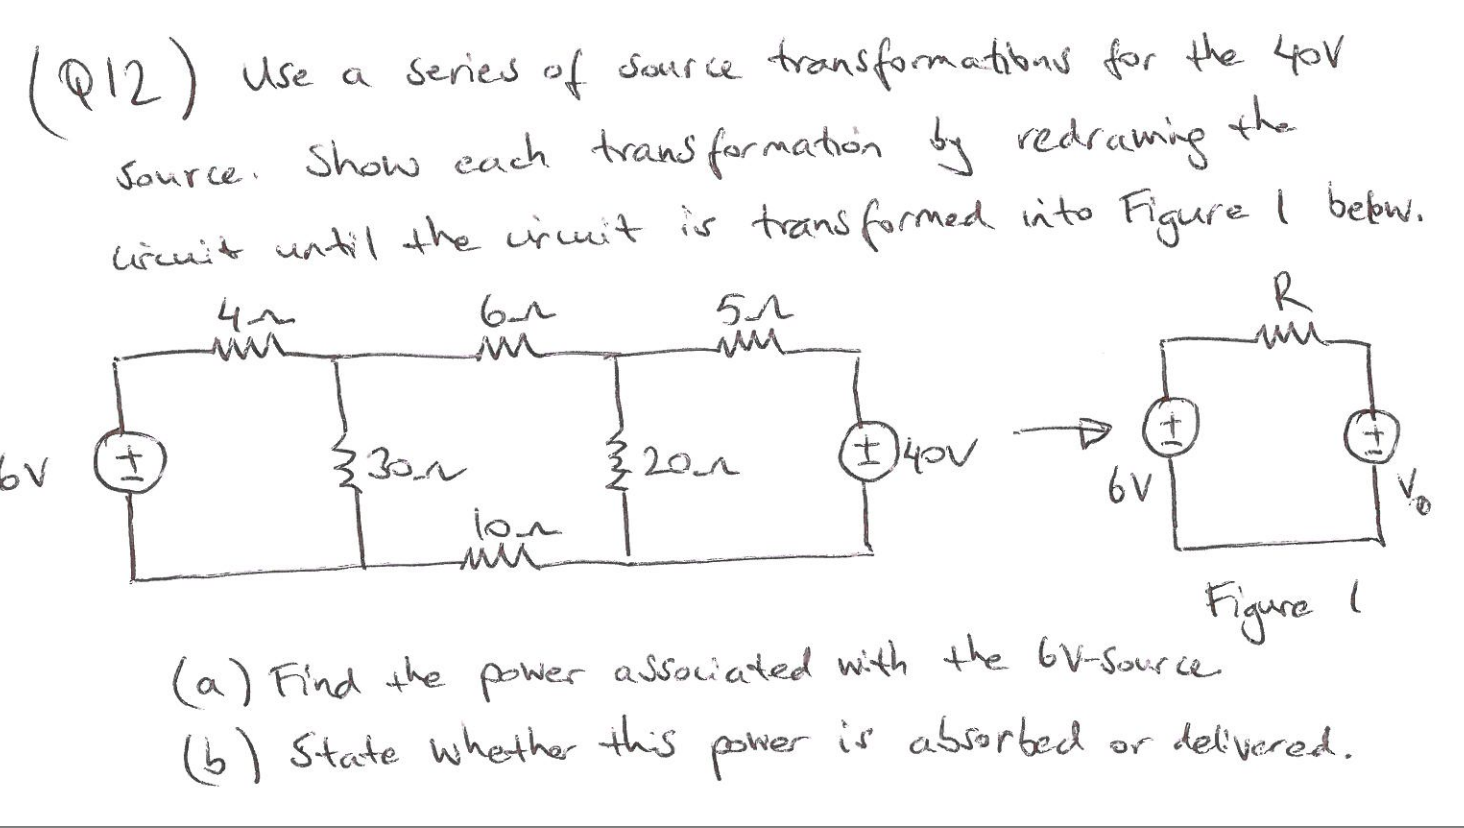 (Q12) Use a series of source transformations for the 40V
source. Show each transformation by redrawing the
circuit until the circuit is transformed into Figure 1 below.
4Ω 6Ω 5Ω R
6V + - 30Ω 20Ω + - 40V + - 6V + - V₀
10Ω
Figure 1
(a) Find the power associated with the 6V-source.
(b) State whether this power is absorbed or delivered.